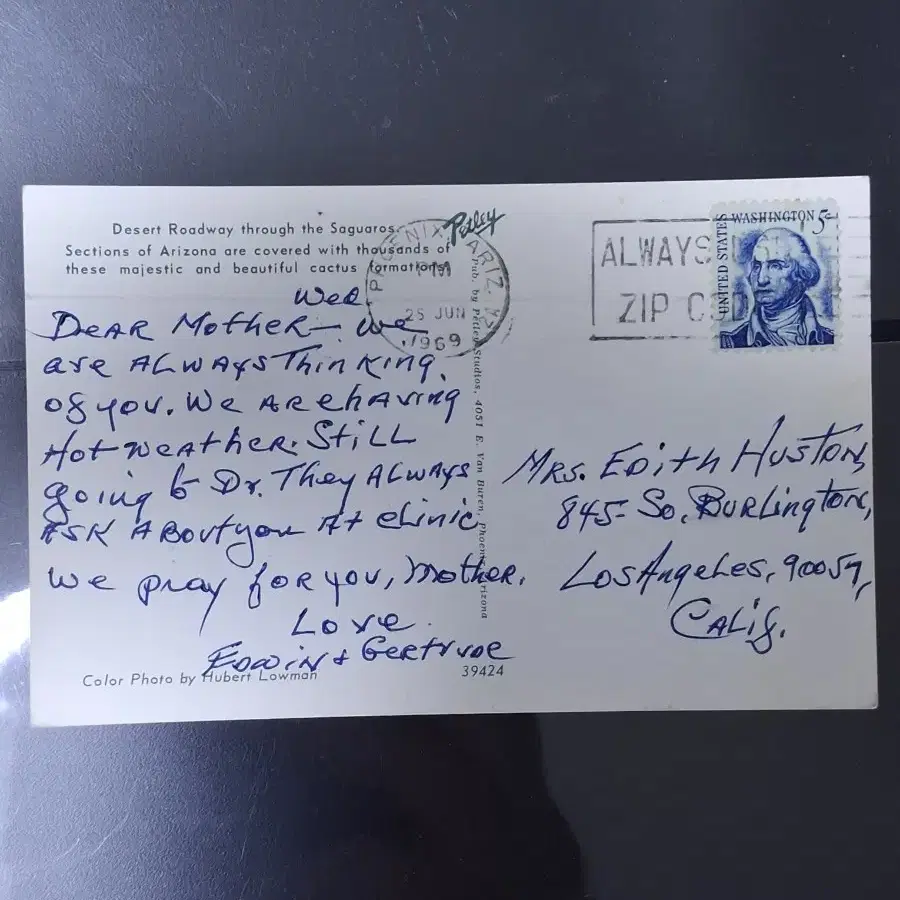 Desert Roadway through the Saguaros.
Sections of Arizona are covered with thousands of
these majestic and beautiful cactus formations.
Petley
PHOENIX, ARIZ.
PM
25 JUN
1969
ALWAYS
ZIP
UNITED STATES
WASHINGTON 5¢
Wed.
Dear Mother— we
are ALWAYS Thinking
of you. We are having
Hot weather. Still
going to Dr. They ALWAYS
ASK About you At clinic
We pray for you, Mother.
Love
Edwin & Gertrude
Pub. by Petley Studios, 4051 E. Van Buren, Phoenix, Arizona
Mrs. Edith Huston,
845 - So. Burlington,
Los Angeles, 90057,
Calif.
Color Photo by Hubert Lowman
39424